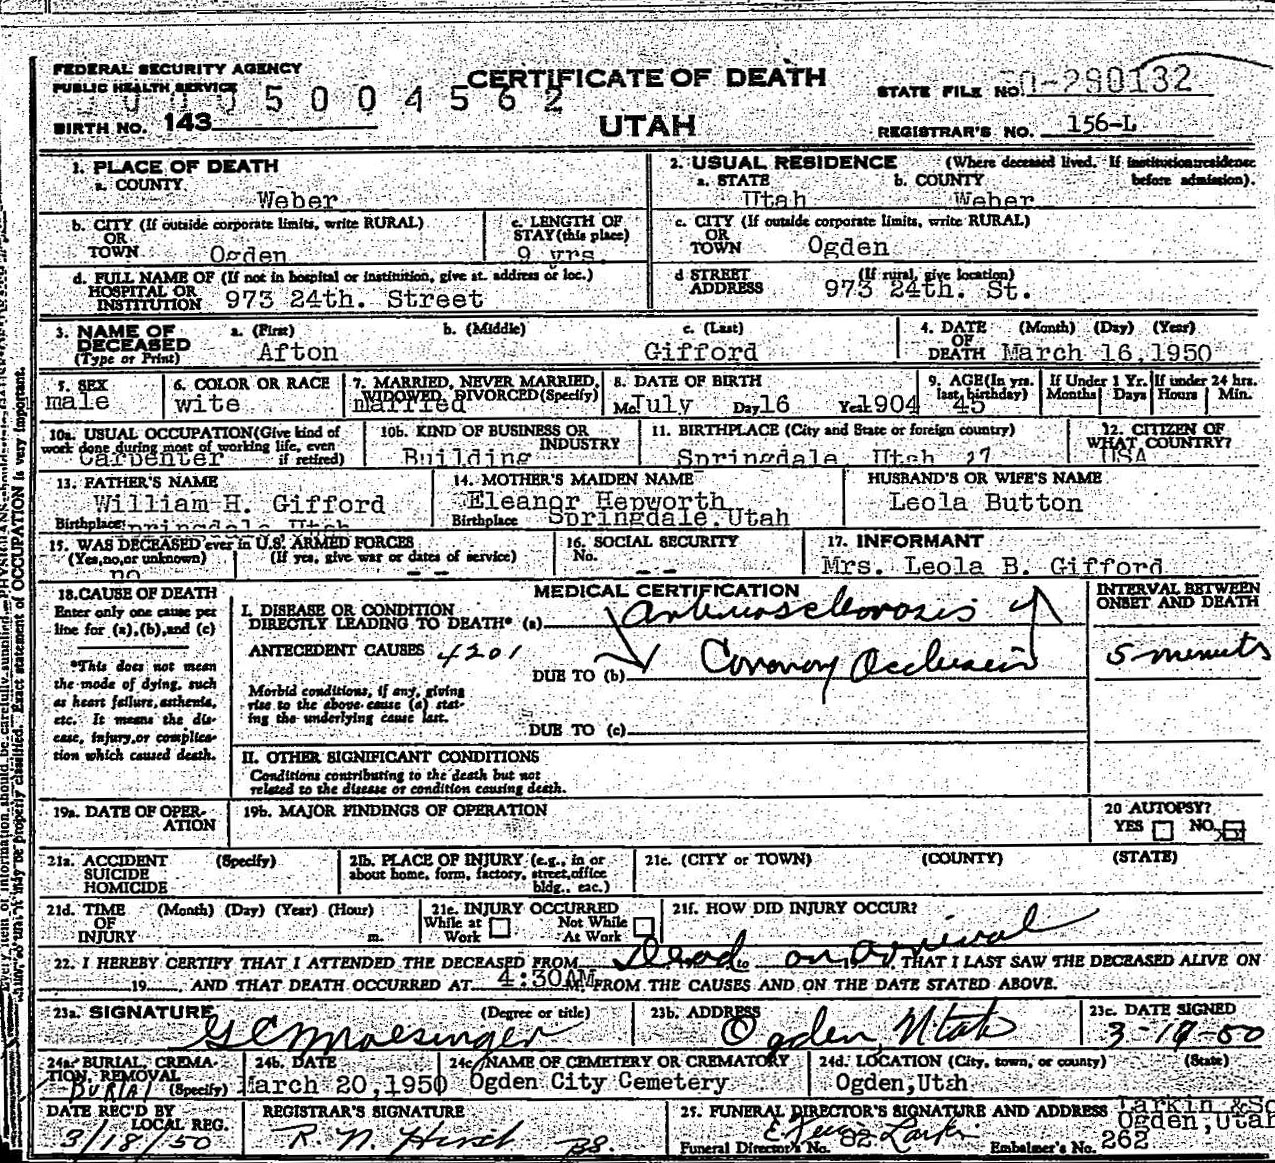 FEDERAL SECURITY AGENCY
PUBLIC HEALTH SERVICE
CERTIFICATE OF DEATH
5004562
STATE FILE NO. 290132
BIRTH NO. 143
UTAH
REGISTRAR'S NO. 156-L
1. PLACE OF DEATH
a. COUNTY
Weber
2. USUAL RESIDENCE (Where deceased lived. If institution:residence before admission).
a. STATE b. COUNTY
Utah Weber
b. CITY (If outside corporate limits, write RURAL)
OR
TOWN Ogden
c. LENGTH OF
STAY (this place)
9 yrs.
c. CITY (If outside corporate limits, write RURAL)
OR
TOWN Ogden
d. FULL NAME OF (If not in hospital or institution, give st. address or loc.)
HOSPITAL OR
INSTITUTION 973 24th. Street
d STREET (If rural, give location)
ADDRESS 973 24th. St.
3. NAME OF
DECEASED
(Type or Print)
a. (First) b. (Middle) c. (Last)
Afton Gifford
4. DATE (Month) (Day) (Year)
OF
DEATH March 16,1950
5. SEX
male
6. COLOR OR RACE
wite
7. MARRIED, NEVER MARRIED,
WIDOWED, DIVORCED(Specify)
married
8. DATE OF BIRTH
Mo. July Day 16 Year 1904
9. AGE(In yrs.
last birthday)
45
If Under 1 Yr.
Months Days
If under 24 hrs.
Hours Min.
10a. USUAL OCCUPATION(Give kind of
work done during most of working life, even
if retired)
Carpenter
10b. KIND OF BUSINESS OR
INDUSTRY
Building
11. BIRTHPLACE (City and State or foreign country)
Springdale Utah 27
12. CITIZEN OF
WHAT COUNTRY?
USA
13. FATHER'S NAME
William H. Gifford
Birthplace Springdale Utah
14. MOTHER'S MAIDEN NAME
Eleanor Hepworth
Birthplace Springdale.Utah
HUSBAND'S OR WIFE'S NAME
Leola Button
15. WAS DECEASED ever in U.S. ARMED FORCES
(Yes,no,or unknown) (If yes, give war or dates of service)
no - -
16. SOCIAL SECURITY
No. - -
17. INFORMANT
Mrs. Leola B. Gifford
18.CAUSE OF DEATH
Enter only one cause per
line for (a),(b),and (c)
*This does not mean
the mode of dying, such
as heart failure,asthenia,
etc. It means the dis-
ease, injury,or complica-
tion which caused death.
MEDICAL CERTIFICATION
I. DISEASE OR CONDITION
DIRECTLY LEADING TO DEATH* (a) Arteriosclerosis
ANTECEDENT CAUSES 4201
DUE TO (b) Coronary Occlusion
Morbid conditions, if any, giving
rise to the above cause (a) stat-
ing the underlying cause last.
DUE TO (c)
II. OTHER SIGNIFICANT CONDITIONS
Conditions contributing to the death but not
related to the disease or condition causing death.
INTERVAL BETWEEN
ONSET AND DEATH
5 minuts
19a. DATE OF OPER-
ATION
19b. MAJOR FINDINGS OF OPERATION
20 AUTOPSY?
YES NO
21a. ACCIDENT (Specify)
SUICIDE
HOMICIDE
21b. PLACE OF INJURY (e.g., in or
about home, form, factory, street,office
bldg., eac.)
21c. (CITY or TOWN) (COUNTY) (STATE)
21d. TIME (Month) (Day) (Year) (Hour)
OF
INJURY m.
21e. INJURY OCCURRED
While at Work Not While At Work
21f. HOW DID INJURY OCCUR?
22. I HEREBY CERTIFY THAT I ATTENDED THE DECEASED FROM Dead to on arrival, THAT I LAST SAW THE DECEASED ALIVE ON
19 , AND THAT DEATH OCCURRED AT 4:30AM M. FROM THE CAUSES AND ON THE DATE STATED ABOVE.
23a. SIGNATURE (Degree or title)
G C Moesinger
23b. ADDRESS
Ogden, Utah
23c. DATE SIGNED
3-19-50
24a. BURIAL, CREMA-
TION, REMOVAL
(Specify)
Burial
24b. DATE
March 20,1950
24c. NAME OF CEMETERY OR CREMATORY
Ogden City Cemetery
24d. LOCATION (City, town, or county) (State)
Ogden,Utah
DATE REC'D BY
LOCAL REG.
3/18/50
REGISTRAR'S SIGNATURE
R. N. Hirst BS.
25. FUNERAL DIRECTOR'S SIGNATURE AND ADDRESS Larkin &
Ogden,Utah
Larkin
Funeral Director's No. 82 Embalmer's No. 262
OCCUPATION is very important.